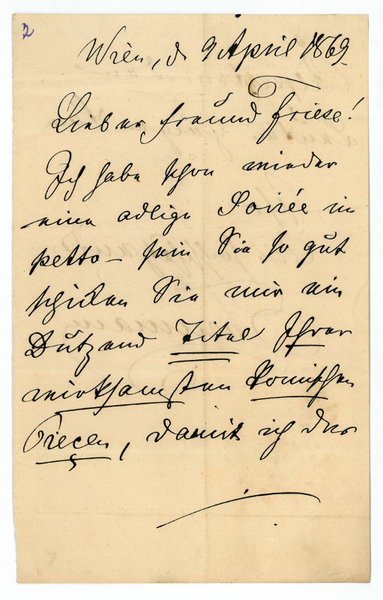 2
Wien, d 9 April 1869.
Lieber Freund Friese!
Ich habe schon wieder
eine adlige Soirée in
petto – sein Sie so gut
schicken Sie mir ein
Dutzend Titel Ihrer
wirksamsten komischen
Piecen, damit ich der